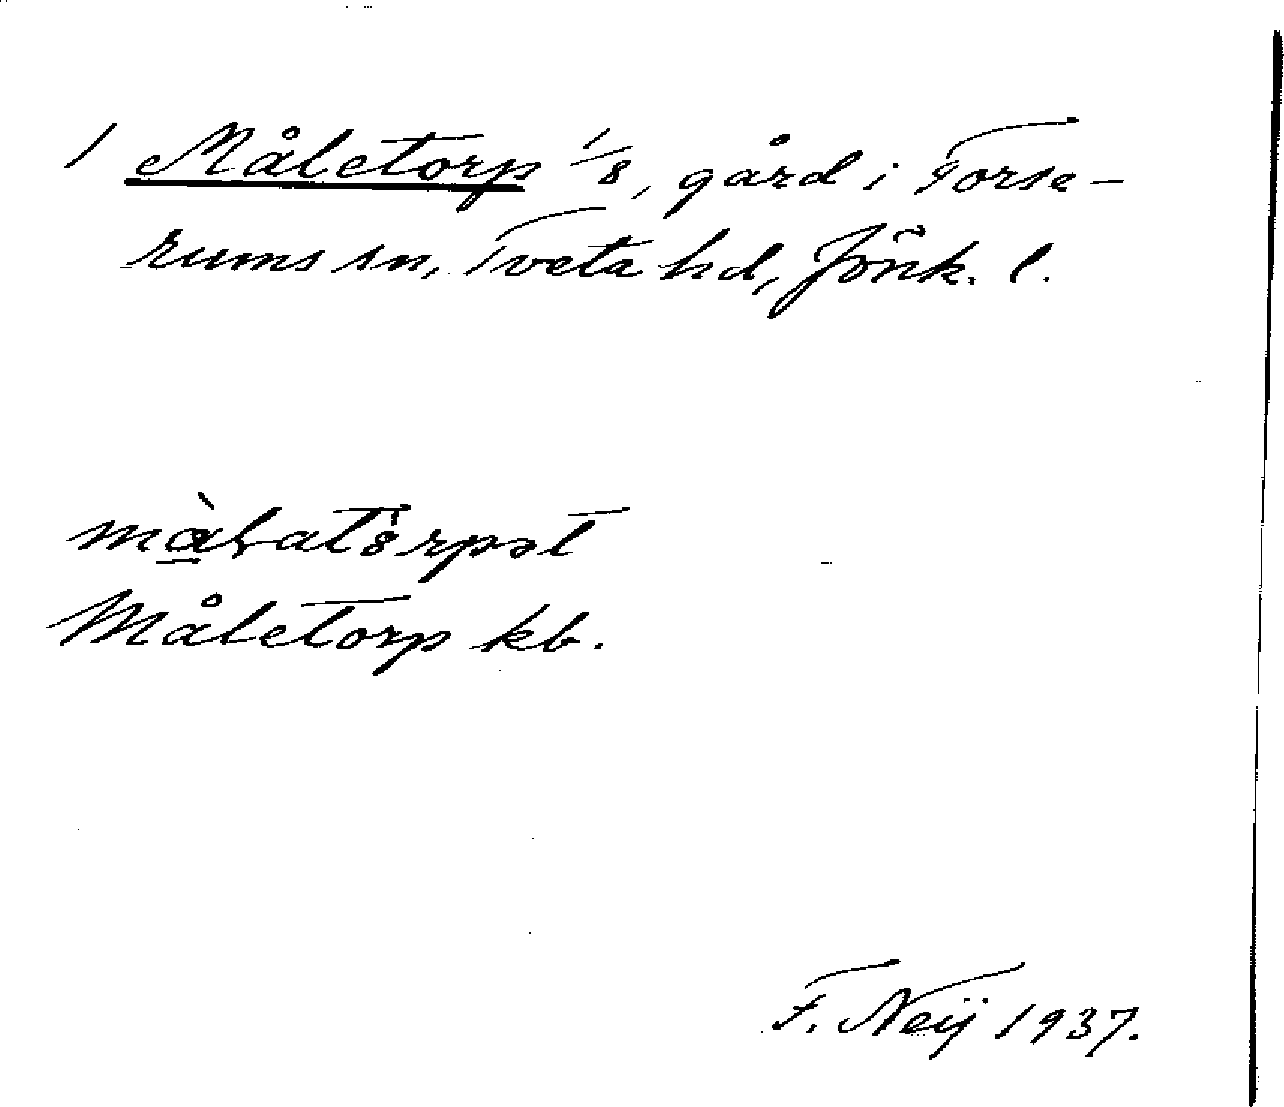 1 Måletorp 1/8, gård i Forse-
rums sn, Tveta hd, Jönk. l.
Måletorp kb.
F. Neij 1937.